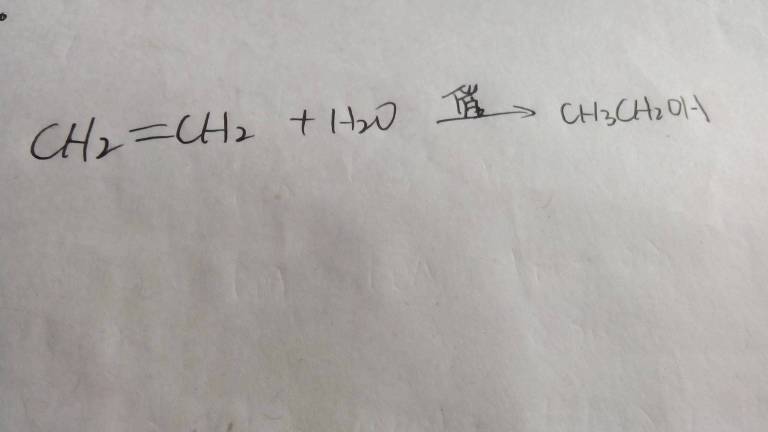 CH2=CH2 + H2O 催→ CH3CH2OH